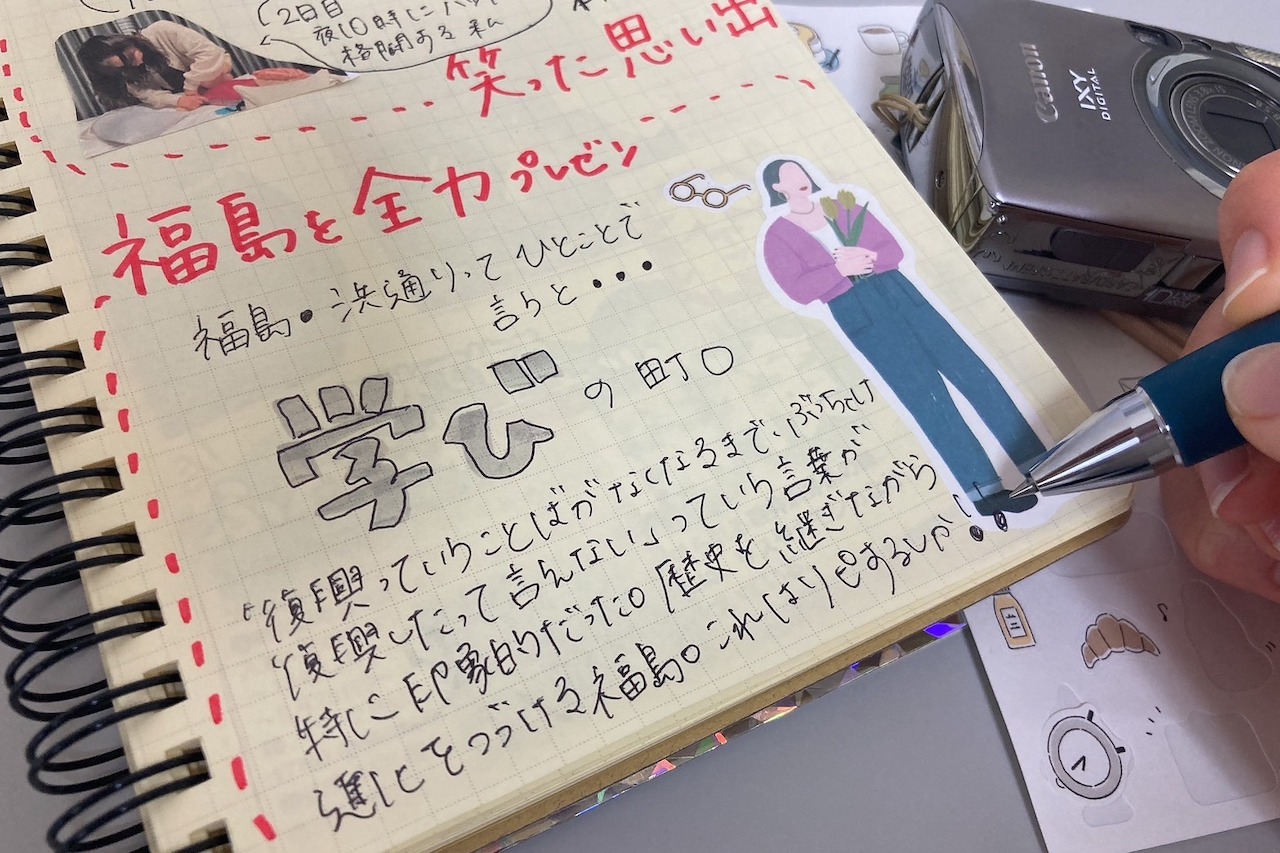 2日目
夜10時に
格闘する私
笑った思い出
福島を全力プレゼン
福島・浜通りってひとことで
言うと・・・
学びの町。
“復興っていうことばがなくなるまで、ぶっちゃけ
復興したって言えない」っていう言葉が
特に印象的だった。歴史を継ぎながら
進化をつづける福島。これはリピするしか!!
Canon
IXY
DIGITAL